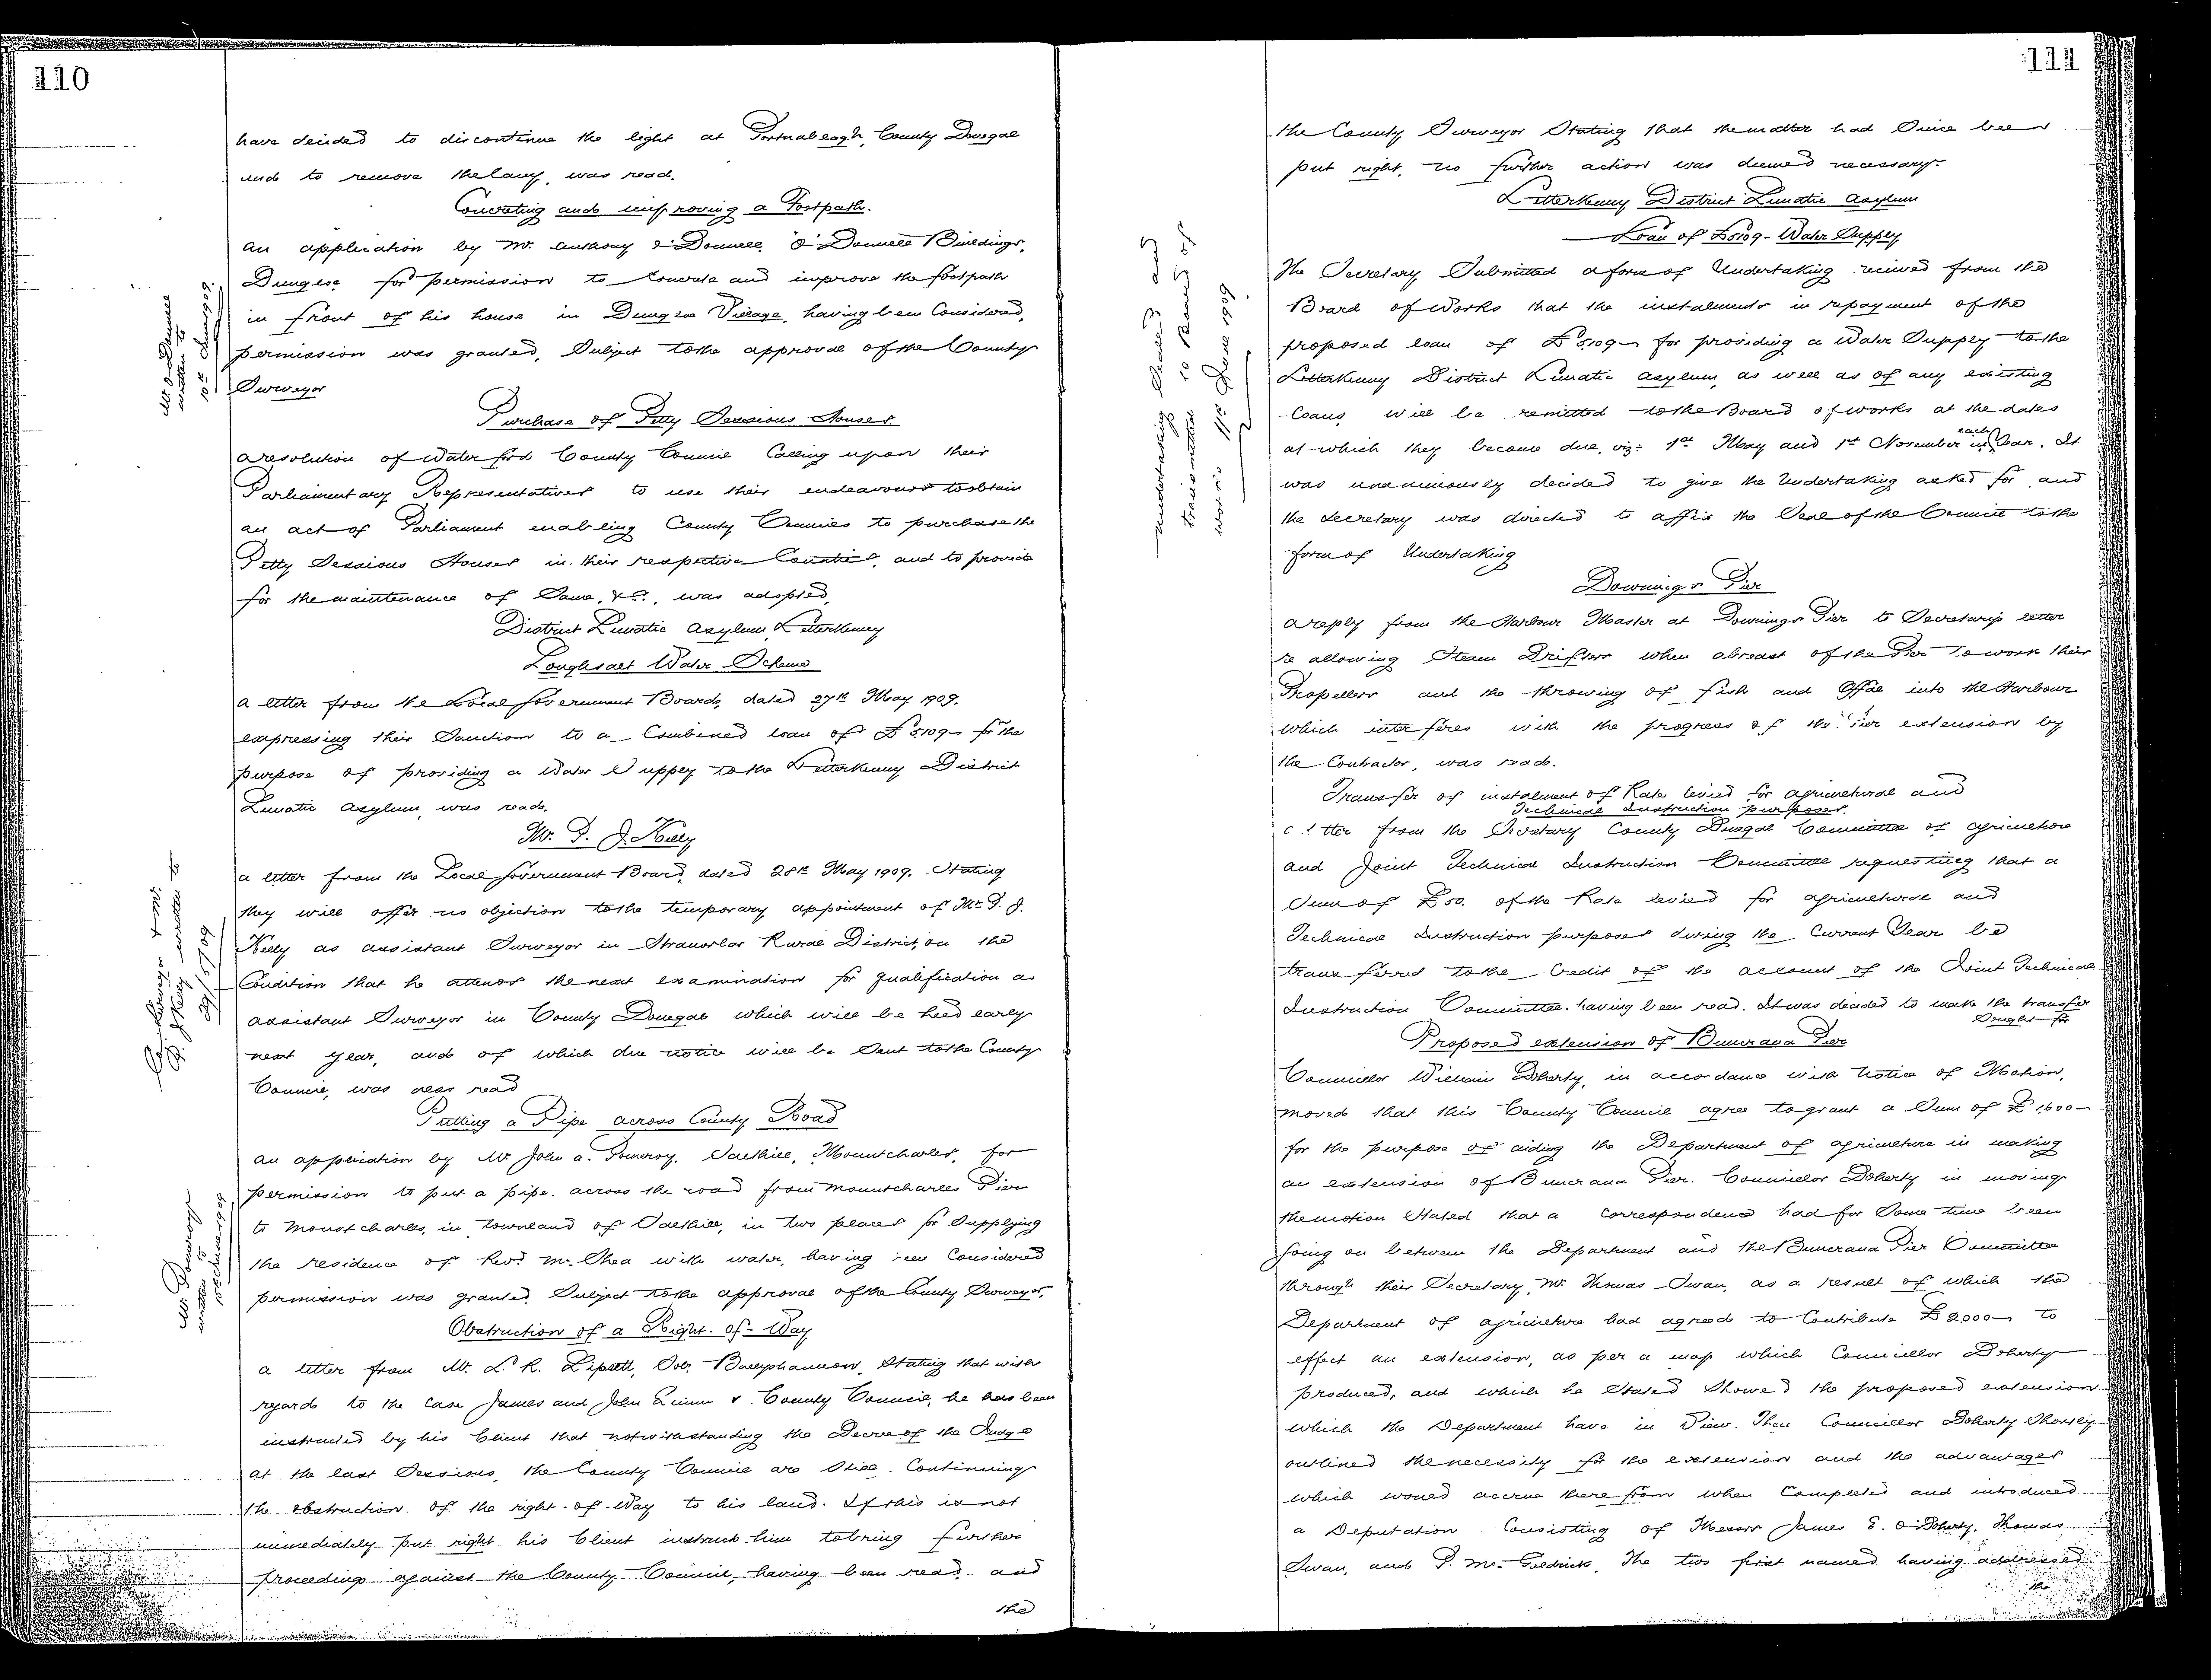 110
have decided to discontinue the light at Portnableagh, County Donegal
and to remove the lamp, was read.
Concreting and improving a Footpath.
an application by Mr. Anthony O'Donnell, O'Donnell Buildings,
Dungloe for permission to Concrete and improve the footpath
in front of his house in Dungloe Village, having been Considered,
permission was granted, Subject to the approval of the County
Surveyor
Mr O'Donnell
written to
10th June 1909.
Purchase of Petty Sessions Houses.
a resolution of Waterford County Council Calling upon their
Parliamentary Representatives to use their endeavours to obtain
an act of Parliament enabling County Councils to purchase the
Petty Sessions Houses in their respective Counties, and to provide
for the maintenance of Same, &c., was adopted.
District Lunatic Asylum, Letterkenny
Loughsalt Water Scheme
a letter from the Local Government Board, dated 27th May 1909.
expressing their Sanction to a Combined loan of £5109 for the
purpose of providing a Water Supply to the Letterkenny District
Lunatic Asylum, was read.
Mr. P. J. Kelly
a letter from the Local Government Board, dated 28th May 1909. Stating
they will offer no objection to the temporary appointment of Mr. P. J.
Kelly as assistant Surveyor in Stranorlar Rural District, on the
Condition that he attends the next examination for qualification as
assistant Surveyor in County Donegal which will be held early
next year, and of which due notice will be Sent to the County
Council, was also read
Co. Surveyor & Mr.
P. J. Kelly written to
29/5/09
Putting a Pipe across County Road
an application by Mr John A. Pomeroy, Salthill, Mountcharles, for
permission to put a pipe across the road from Mountcharles Pier
to Mountcharles, in townland of Salthill, in two places for Supplying
the residence of Revd. Mr. Shea with water, having been Considered
permission was granted, Subject to the approval of the County Surveyor.
Mr. Pomeroy
written to
10th June 1909
Obstruction of a Right-of-Way
a letter from Mr. L. R. Lipsett, Solr. Ballyshannon, Stating that with
regard to the case James and John Quinn v. County Council, he has been
instructed by his Client that notwithstanding the Decree of the Judge
at the last Sessions, the County Council are Still Continuing
the obstruction of the right-of-Way to his land. If this is not
immediately put right his Client instructs him to bring further
proceedings against the County Council, having been read, and
the
111
the County Surveyor Stating that the matter had Since been
put right, no further action was deemed necessary.
Letterkenny District Lunatic Asylum
Loan of £5109 - Water Supply
The Secretary Submitted a form of Undertaking received from the
Board of Works that the instalments in repayment of the
proposed loan of £5109 for providing a Water Supply to the
Letterkenny District Lunatic Asylum, as well as of any existing
Loans, will be remitted to the Board of Works at the dates
at which they become due, viz: 1st May and 1st November in each Year. It
was unanimously decided to give the Undertaking asked for and
the Secretary was directed to affix the Seal of the Council to the
form of Undertaking
undertaking sealed and
transmitted to Board of
works 11th June 1909.
Downings Pier
a reply from the Harbour Master at Downings Pier to Secretary's letter
re allowing Steam Drifters when abreast of the Pier to work their
Propellers and the throwing of fish and Offal into the Harbour
which interferes with the progress of the Pier extension by
the Contractor, was read.
Transfer of instalment of Rate levied for agricultural and
Technical Instruction purposes.
a letter from the Secretary County Donegal Committee of agriculture
and Joint Technical Instruction Committee requesting that a
Sum of £50. of the Rate levied for agricultural and
Technical Instruction purposes during the Current Year be
transferred to the Credit of the account of the Joint Technical
Instruction Committee. having been read. It was decided to make the transfer
Sought for
Proposed extension of Buncrana Pier
Councillor William Doherty, in accordance with Notice of Motion,
moved that this County Council agree to grant a Sum of £1,600
for the purpose of aiding the Department of agriculture in making
an extension of Buncrana Pier. Councillor Doherty in moving
the motion Stated that a correspondence had for Some time been
going on between the Department and the Buncrana Pier Committee
through their Secretary, Mr. Thomas Swan, as a result of which the
Department of agriculture had agreed to Contribute £2,000 to
effect an extension, as per a map which Councillor Doherty
produced, and which he Stated Showed the proposed extension
which the Department have in View. Then Councillor Doherty Shortly
outlined the necessity for the extension and the advantages
which would accrue there from when Completed and introduced
a Deputation Consisting of Messrs James E. O'Doherty, Thomas
Swan, and P. McGoldrick, The two first named having addressed
the